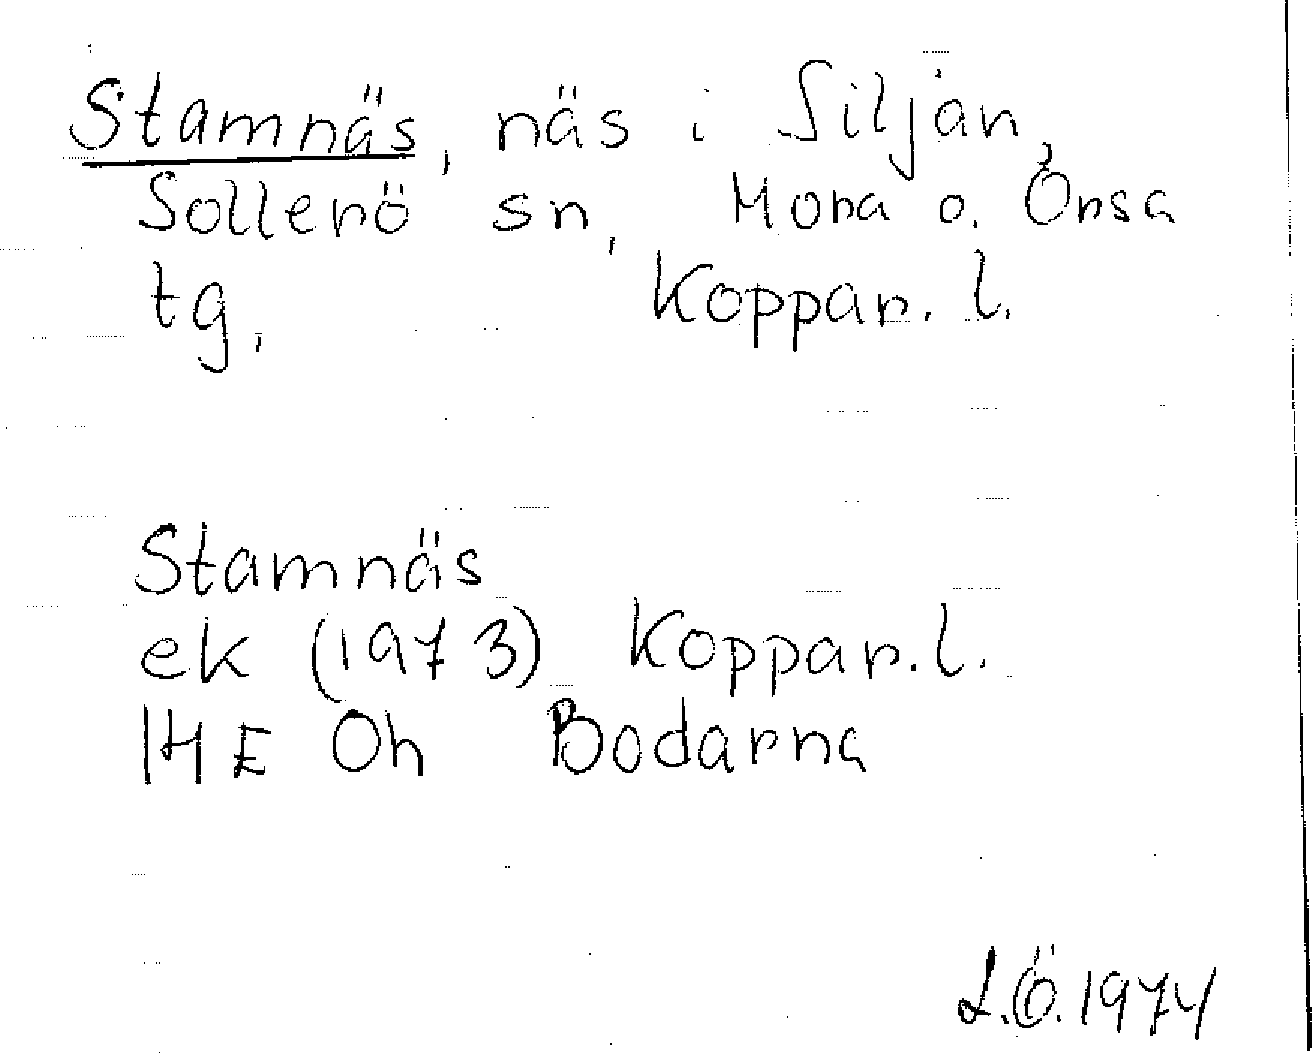 Stamnäs, näs i Siljan,
Sollerö sn, Mora o. Orsa
tg, Koppar. l.
Stamnäs
ek (1973) Koppar. l.
14 E Öh Bodarna
L.Ö. 1974